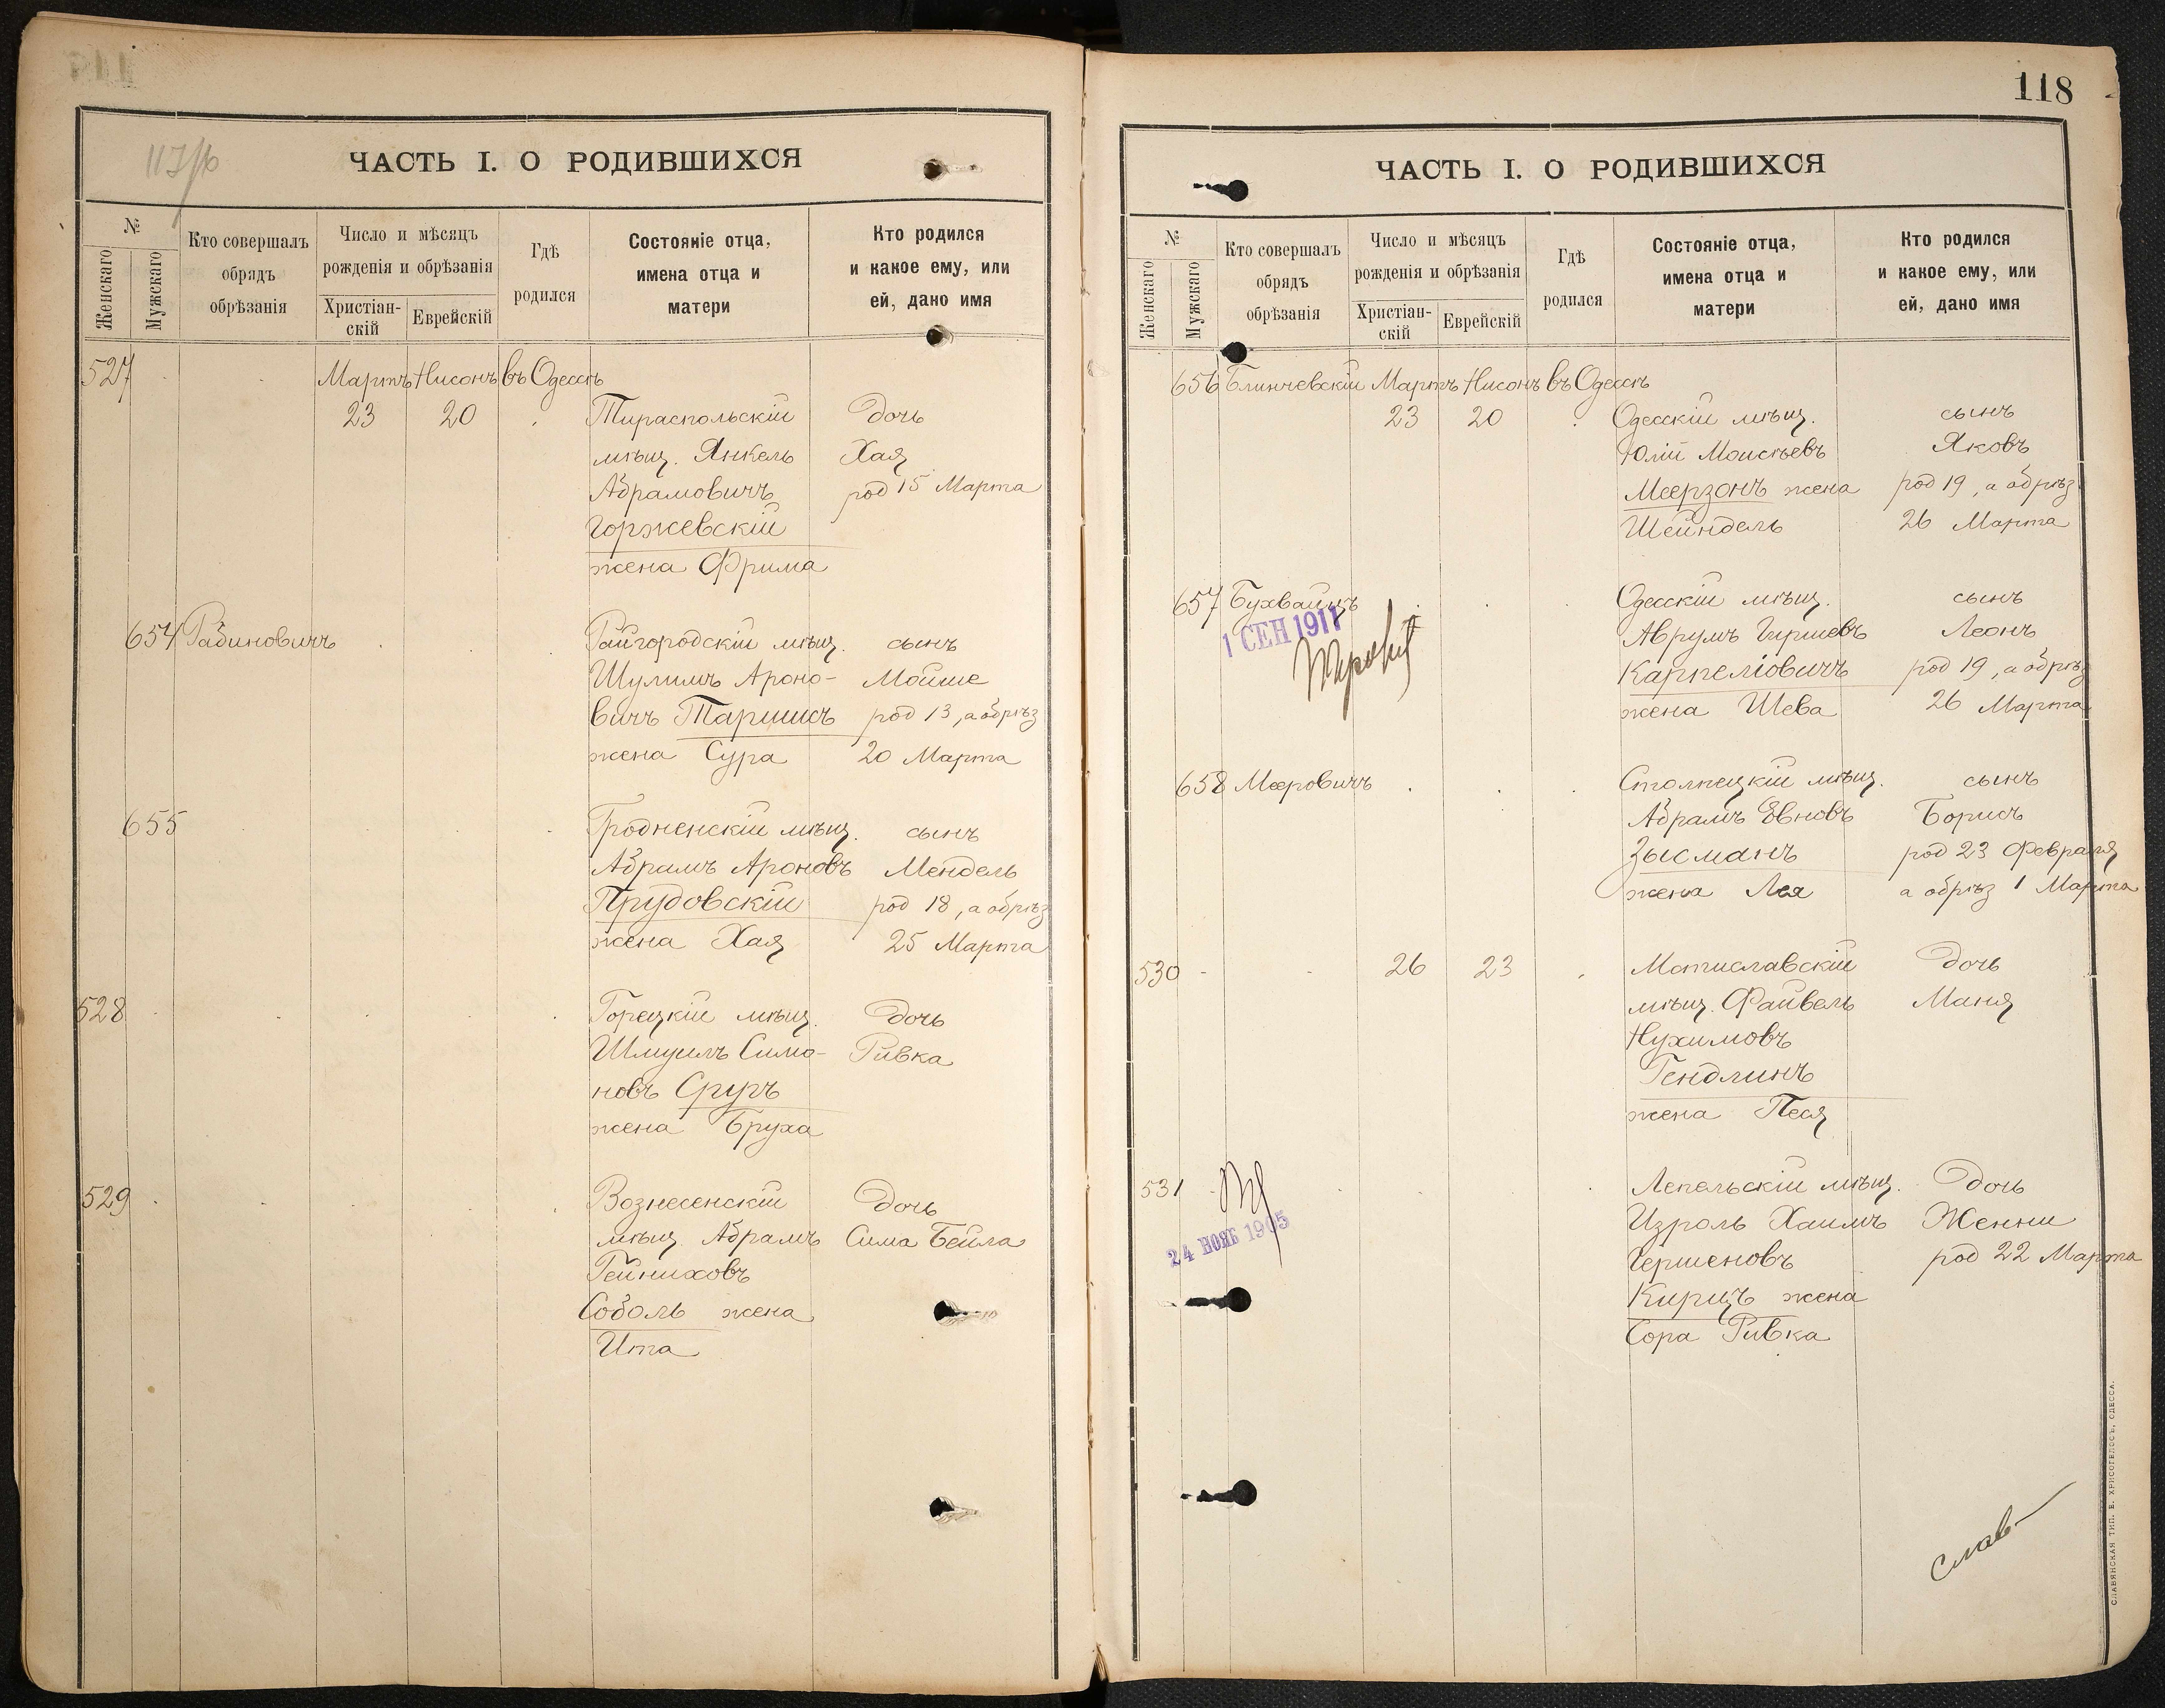 117/об
ЧАСТЬ I. О РОДИВШИХСЯ
№
Женскаго
Мужскаго
Кто совершалъ
обрядъ
обрѣзанія
Число и мѣсяцъ
рожденія и обрѣзанія
Христіан-
скій
Еврейскій
Гдѣ
родился
Состояніе отца,
имена отца и
матери
Кто родился
и какое ему, или
ей, дано имя
527 Мартъ Нисонъ въ Одессѣ
23 20 Тираспольскій дочь
мѣщ. Янкель Хая
Абрамовичъ род 15 Марта
Горжевскій
жена Фрима
654 Рабиновичъ Райгородскій мѣщ. сынъ
Шулимъ Ароно- Мойше
вичъ Таршисъ род 13, а обрѣз
жена Сура 20 Марта
655 Гродненскій мѣщ. сынъ
Абрамъ Ароновъ Мендель
Прудовскій род 18, а обрѣз
жена Хая 25 Марта
528 Горецкій мѣщ. дочь
Шмуилъ Симо- Ривка
новъ
жена Бруха
529 Вознесенскій дочь
мѣщ. Абрамъ Сима Бейла
Гейниховъ
Соболь жена
Ита
118
ЧАСТЬ I. О РОДИВШИХСЯ
№
Женскаго
Мужскаго
Кто совершалъ
обрядъ
обрѣзанія
Число и мѣсяцъ
рожденія и обрѣзанія
Христіан-
скій
Еврейскій
Гдѣ
родился
Состояніе отца,
имена отца и
матери
Кто родился
и какое ему, или
ей, дано имя
656 Блинчевскій Мартъ Нисонъ въ Одессѣ
23 20 Одесскій мѣщ. сынъ
Юлій Моисѣевъ Яковъ
Меерзонъ жена род 19, а обрѣз
Шейндель 26 Марта
657 Бухвайцъ Одесскій мѣщ. сынъ
1 СЕН 1911
Аврумъ Гершевъ Леонъ
Карпеліовичъ род 19, а обрѣз
жена Шева 26 Марта
658 Мееровичъ Столпецкій мѣщ. сынъ
Абрамъ Евновъ Борисъ
Зысманъ род 23 Февраля
жена Лея а обрѣз 1 Марта
530 26 23 Мстиславскій дочь
мѣщ. Файвель Маня
Нухимовъ
Гендлинъ
жена Песя
531 Лепельскій мѣщ. дочь
Изроль Хаимъ Женни
24 НОЯБ 1905
Гершеновъ род 22 Марта
Кирцъ жена
Сора Ривка
слав
СЛАВЯНСКАЯ ТИП. Е. ХРИСОГЕЛОСЪ, ОДЕССА.